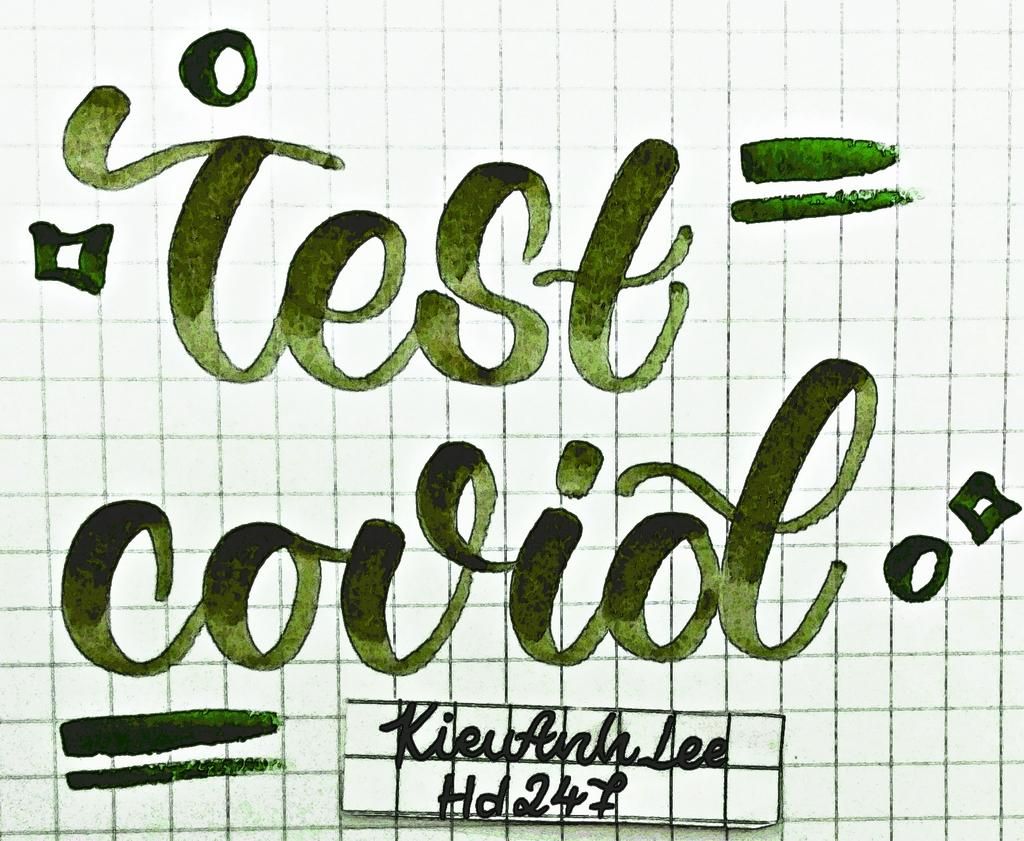 Test
covid
KieuAnh Lee
Hd 247